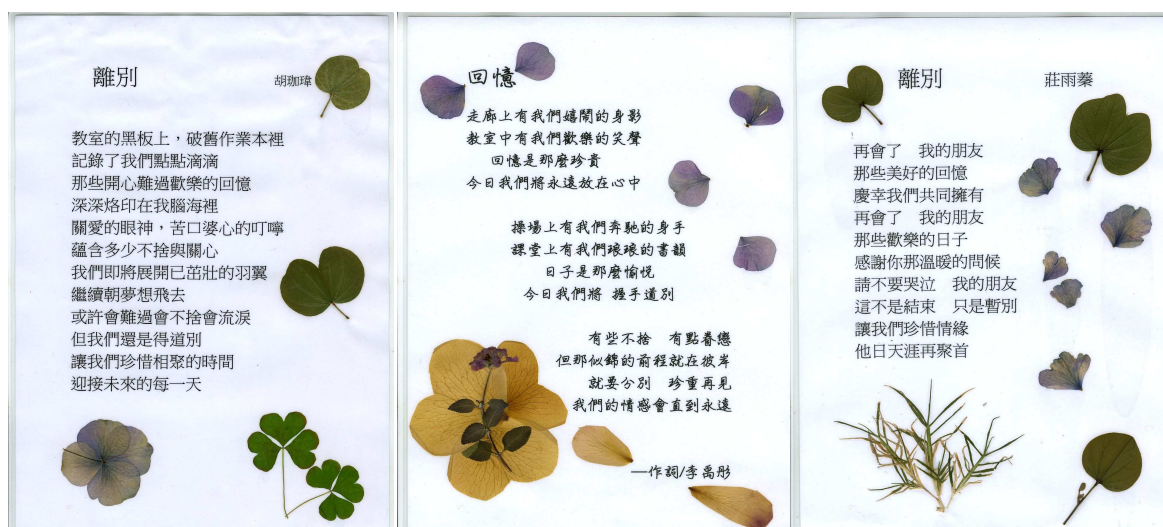 離別
胡珈瑋
教室的黑板上，破舊作業本裡
記錄了我們點點滴滴
那些開心難過歡樂的回憶
深深烙印在我腦海裡
關愛的眼神，苦口婆心的叮嚀
蘊含多少不捨與關心
我們即將展開已茁壯的羽翼
繼續朝夢想飛去
或許會難過會不捨會流淚
但我們還是得道別
讓我們珍惜相聚的時間
迎接未來的每一天
回憶
走廊上有我們嬉鬧的身影
教室中有我們歡樂的笑聲
回憶是那麼珍貴
今日我們將永遠放在心中
操場上有我們奔馳的身手
課堂上有我們琅琅的書韻
日子是那麼愉悅
今日我們將 握手道別
有些不捨　有點眷戀
但那似錦的前程就在彼岸
就要分別　珍重再見
我們的情感會直到永遠
—作詞/李禹彤
離別
莊雨蓁
再會了　我的朋友
那些美好的回憶
慶幸我們共同擁有
再會了　我的朋友
那些歡樂的日子
感謝你那溫暖的問候
請不要哭泣　我的朋友
這不是結束　只是暫別
讓我們珍惜情緣
他日天涯再聚首